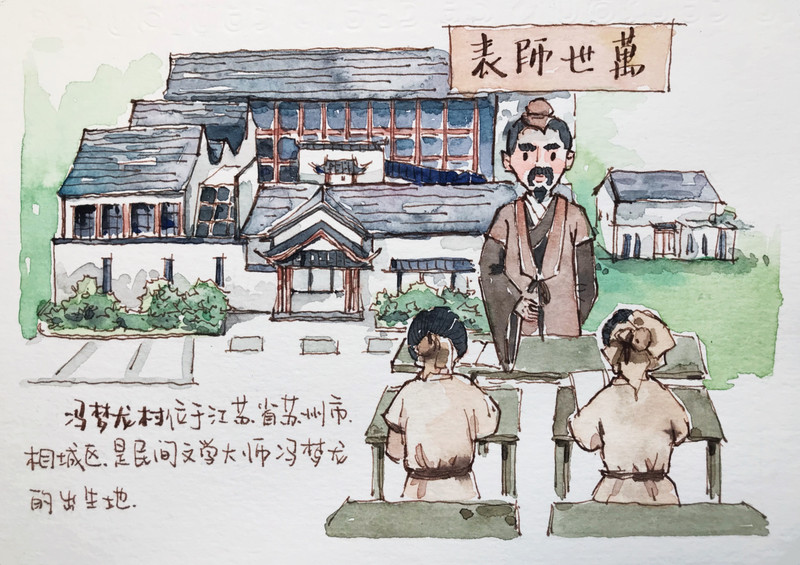 萬世師表
冯梦龙村位于江苏省苏州市.
相城区.是民间文学大师冯梦龙
的出生地.